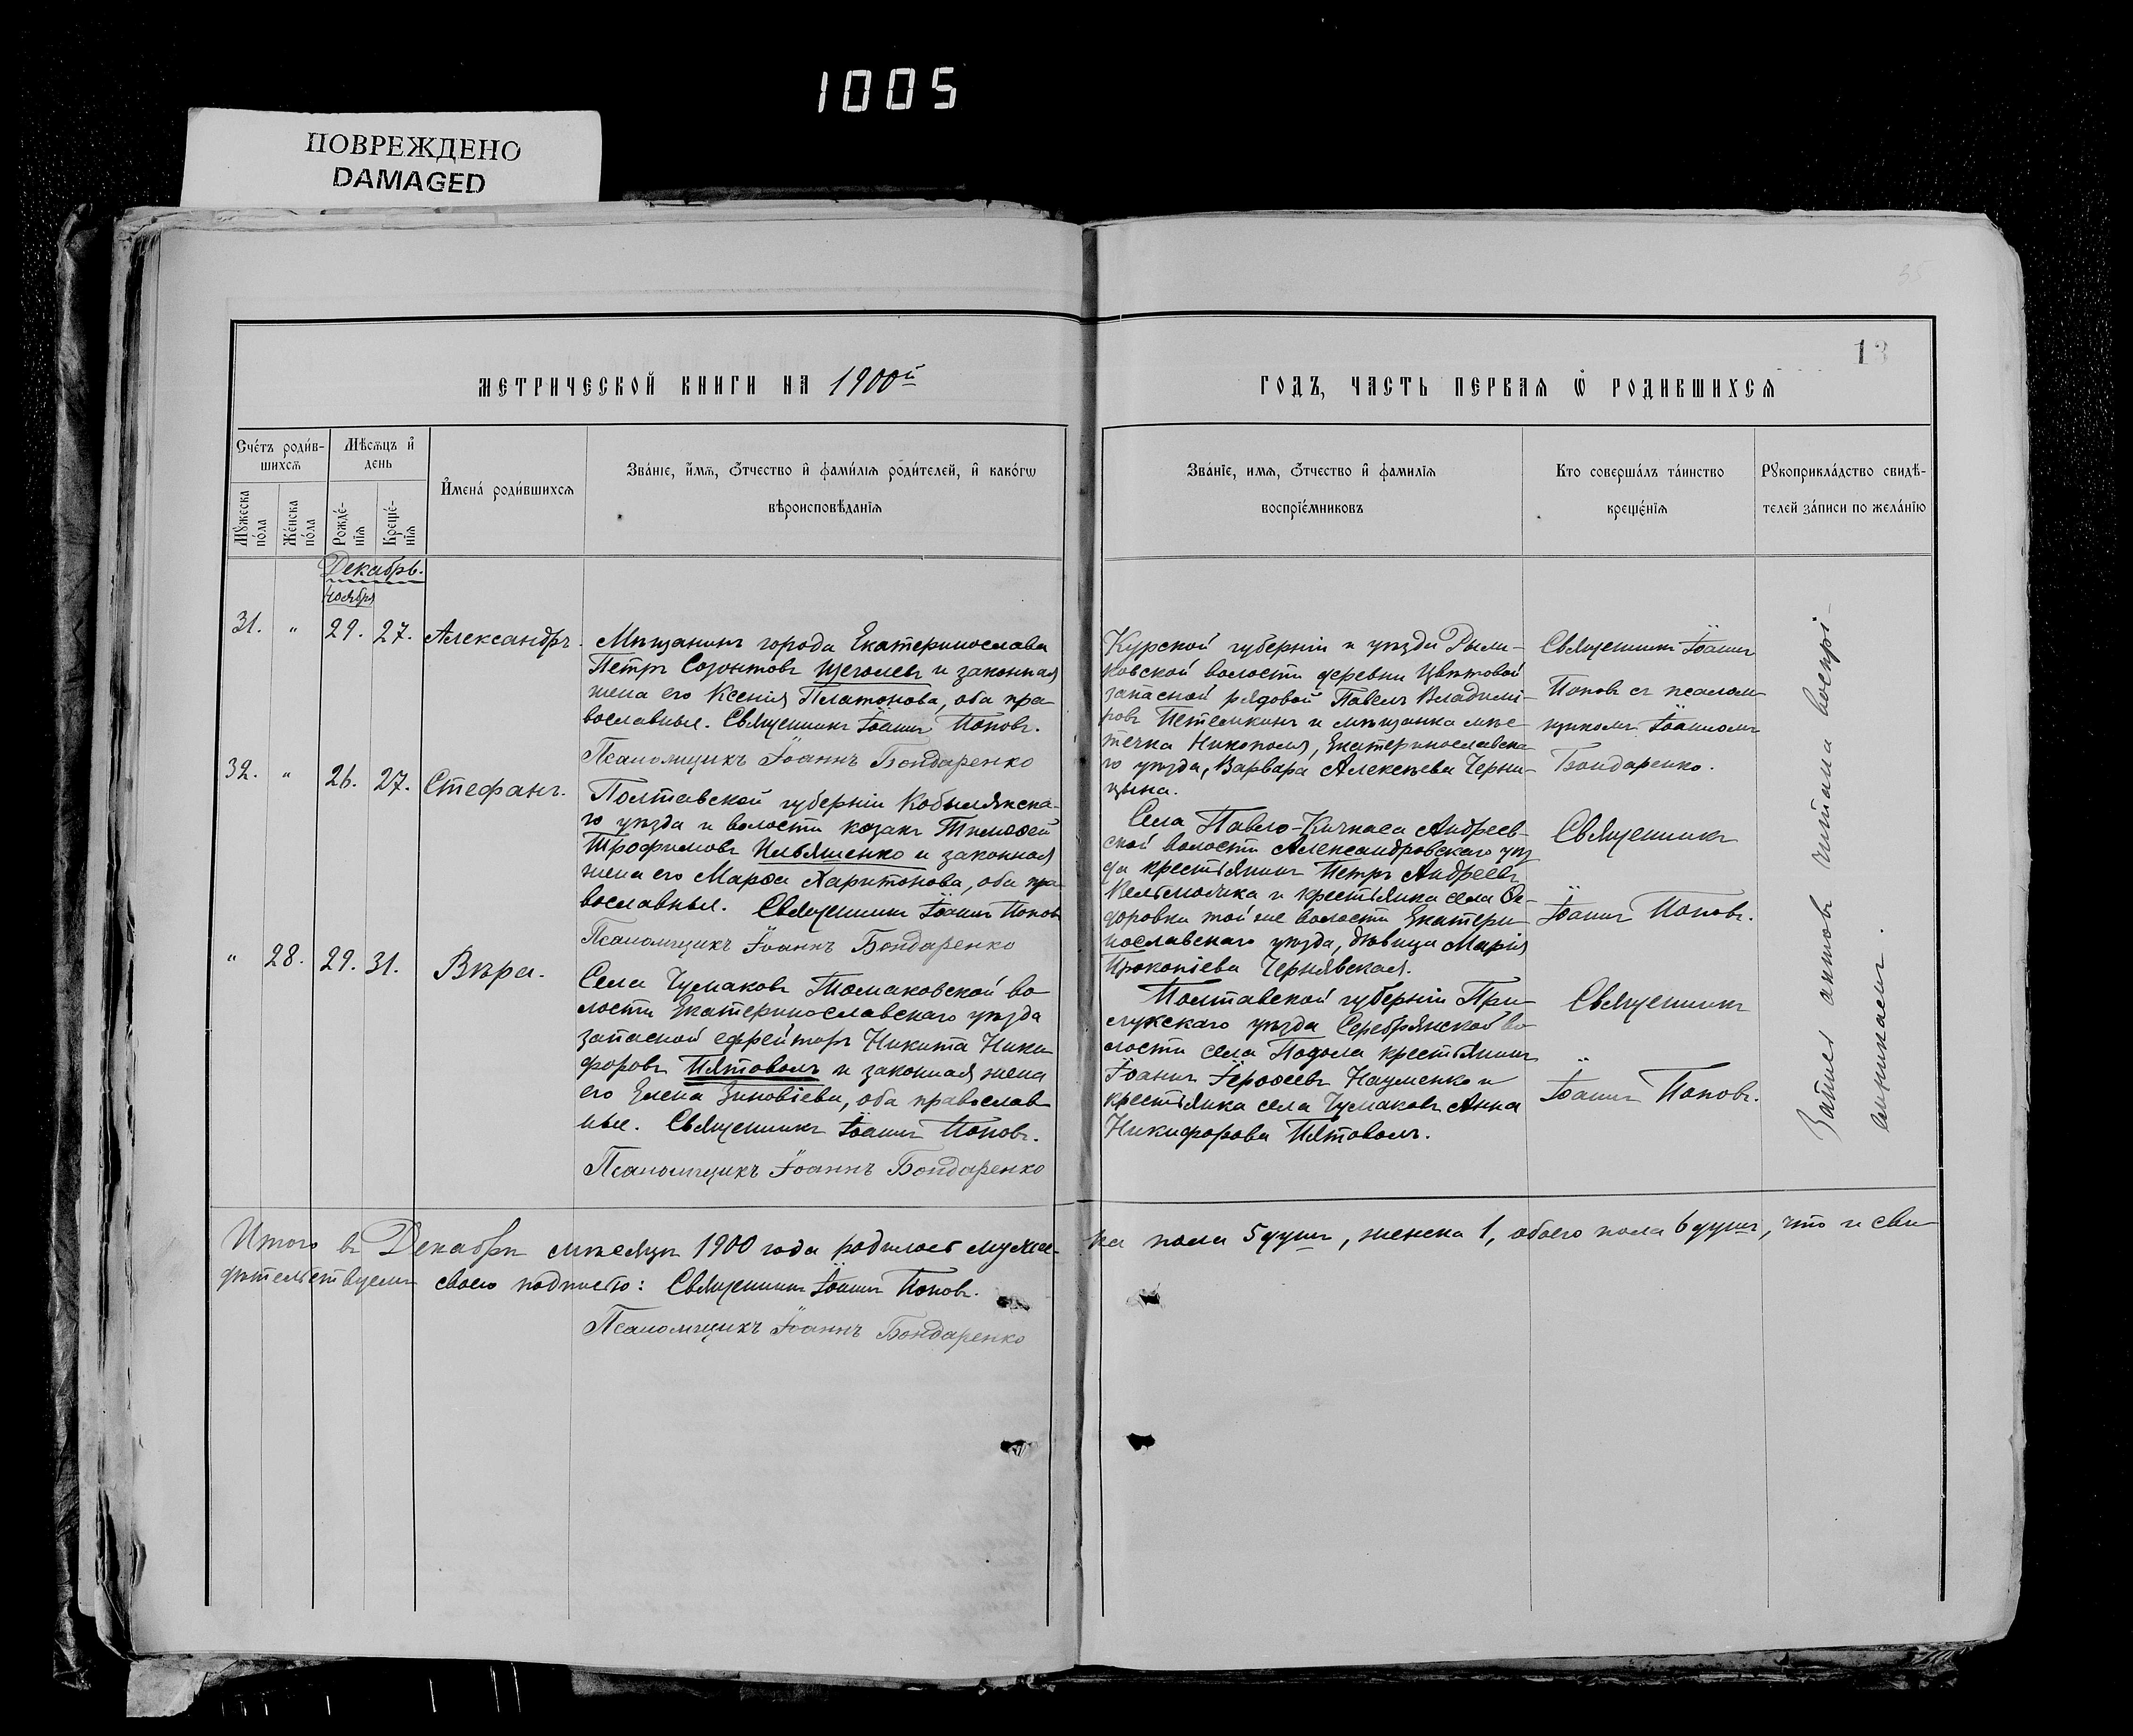 1005
ПОВРЕЖДЕНО
DAMAGED
35
13
МЕТРИЧЕСКОЙ КНИГИ НА 1900й
ГОДЪ, ЧАСТЬ ПЕРВАЯ Ѿ РОДИВШИХСЯ
Счетъ родив-
шихся
Мѣсяцъ и
день
Имена родившихся
Званіе, имя, отчество и фамилія родителей, и какогѡ
вѣроисповѣданія
Мужеска
пола
Женска
пола
Рожде-
нія
Креще-
нія
Званіе, имя, отчество и фамилія
воспріемниковъ
Кто совершалъ таинство
крещенія
Рукоприкладство свидѣ-
телей записи по желанію
Декабрь.
Ноября
31. " 29. 27. Александръ.
Мѣщанинъ города Екатеринослава
Петръ Созонтовъ Щеголевъ и законная
жена его Ксенія Платонова, оба пра-
вославные. Священникъ Іоаннъ Поповъ.
Псаломщикъ Іоаннъ Бондаренко
Курской губерніи и уѣзда Рыли-
ковской волости деревни Цвѣтовой
запасной рядовой Павелъ Владимі-
ровъ Петемкинъ и мѣщанка мѣс-
течка Никополя, Екатеринославска-
го уѣзда, Варвара Алексѣева Черни-
цына.
Священникъ Іоаннъ
Поповъ съ псалом-
щикомъ Іоанномъ
Бондаренко.
32. " 26. 27. Стефанъ.
Полтавской губерніи Кобылякска-
го уѣзда и волости козакъ Тимоѳей
Трофимовъ Ильяшенко и законная
жена его Марѳа Харитонова, оба пра-
вославные. Священникъ Іоаннъ Поповъ
Псаломщикъ Іоаннъ Бондаренко
Села Павло-Кичкаса Андреев-
ской волости Александровскаго уѣз-
да крестьянинъ Петръ Андреевъ
и крестьянка села Ѳе-
доровки той же волости Екатери-
нославскаго уѣзда, дѣвица Марія
Прокопіева Чернявская.
Священникъ
Іоаннъ Поповъ.
" 28. 29. 31. Вѣра.
Села Чумаковъ Томаковской во-
лости Екатеринославскаго уѣзда
запасной ефрейторъ Никита Ники-
форовъ Пятоволъ и законная жена
его Елена Зиновіева, оба православ-
ные. Священникъ Іоаннъ Поповъ.
Псаломщикъ Іоаннъ Бондаренко
Полтавской губерніи При-
лукскаго уѣзда Серебрянской во-
лости села Подола крестьянинъ
Іоаннъ Іероѳеевъ Науменко и
крестьянка села Чумаковъ Анна
Никифорова Пятоволъ.
Священникъ
Іоаннъ Поповъ.
Записи актовъ читали воспрі-
емникамъ.
Итого въ Декабрѣ мѣсяцѣ 1900 года родилось мужес-
ка пола 5 душъ, женска 1, обоего пола 6 душъ, что и сви-
дѣтельствуемъ своею подписью: Священникъ Іоаннъ Поповъ.
Псаломщикъ Іоаннъ Бондаренко